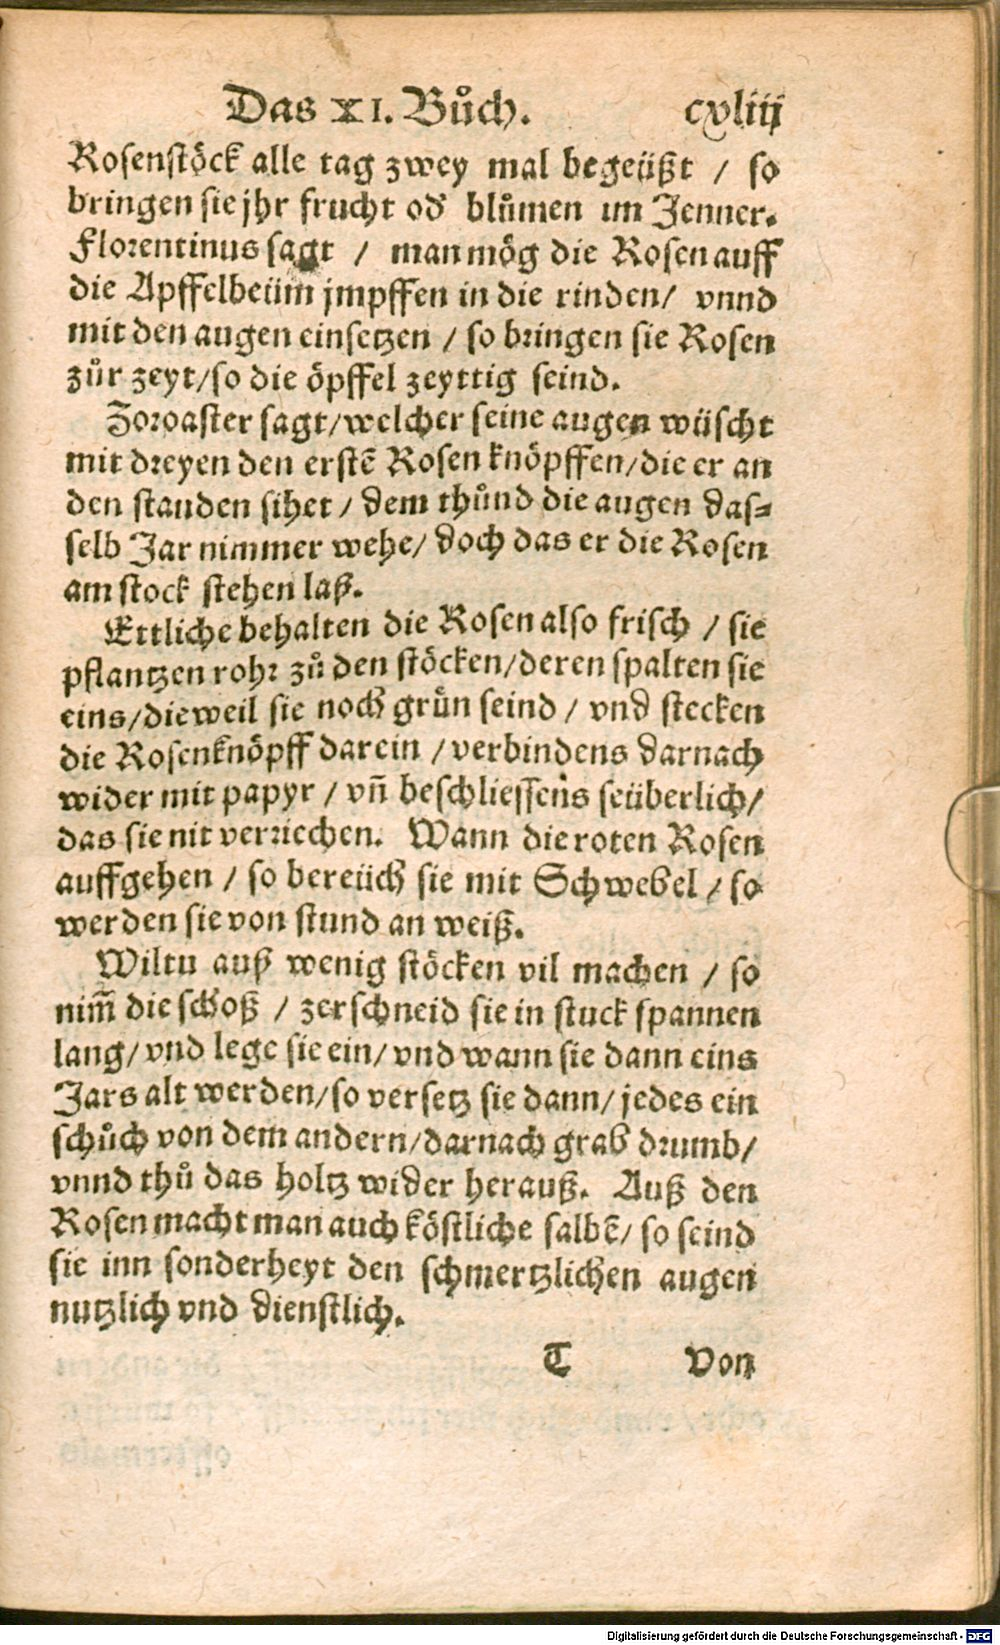 Das XI. Bůch. cxliij
Rosenstöck alle tag zwey mal begeüßt / so
bringen sie jhr frucht od' blůmen im Jenner.
Florentinus sagt / man mög die Rosen auff
die Apffelbeüm jmpffen in die rinden / vnnd
mit den augen einsetzen / so bringen sie Rosen
zůr zeyt / so die öpffel zeyttig seind.
Zoroaster sagt / welcher seine augen wüscht
mit dreyen den erstē Rosen knöpffen / die er an
den stauden sihet / dem thůnd die augen das⸗
selb Jar nimmer wehe / doch das er die Rosen
am stock stehen laß.
Ettliche behalten die Rosen also frisch / sie
pflantzen rohr zů den stöcken / deren spalten sie
eins / dieweil sie noch grün seind / vnd stecken
die Rosenknöpff darein / verbindens darnach
wider mit papyr / vñ beschliessens seüberlich /
das sie nit verriechen. Wann die roten Rosen
auffgehen / so bereüch sie mit Schwebel / so
werden sie von stund an weiß.
Wiltu auß wenig stöcken vil machen / so
nim̄ die schoß / zerschneid sie in stuck spannen
lang / vnd lege sie ein / vnd wann sie dann eins
Jars alt werden / so versetz sie dann / jedes ein
schůch von dem andern / darnach grab drumb /
vnnd thů das holtz wider herauß. Auß den
Rosen macht man auch köstliche salbē / so seind
sie inn sonderheyt den schmertzlichen augen
nutzlich vnd dienstlich.
T Von
Digitalisierung gefördert durch die Deutsche Forschungsgemeinschaft - DFG